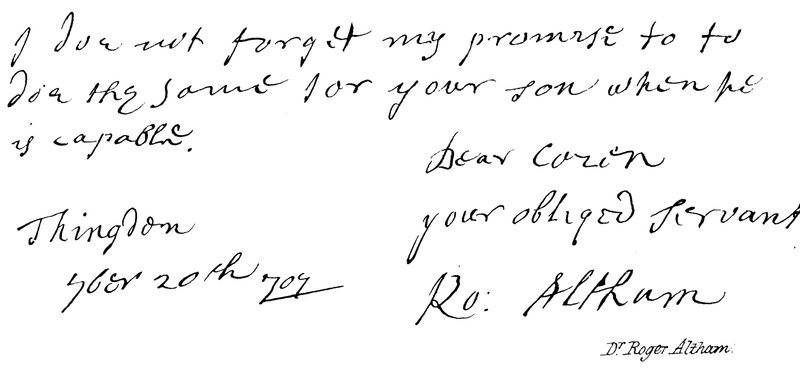 I doe not forget my promise to to
doe the same for your son when he
is capable.
Dear Cozen
your obliged servant
Thingdon
7ber 20th 707
Ro: Altham
Dr Roger Altham.